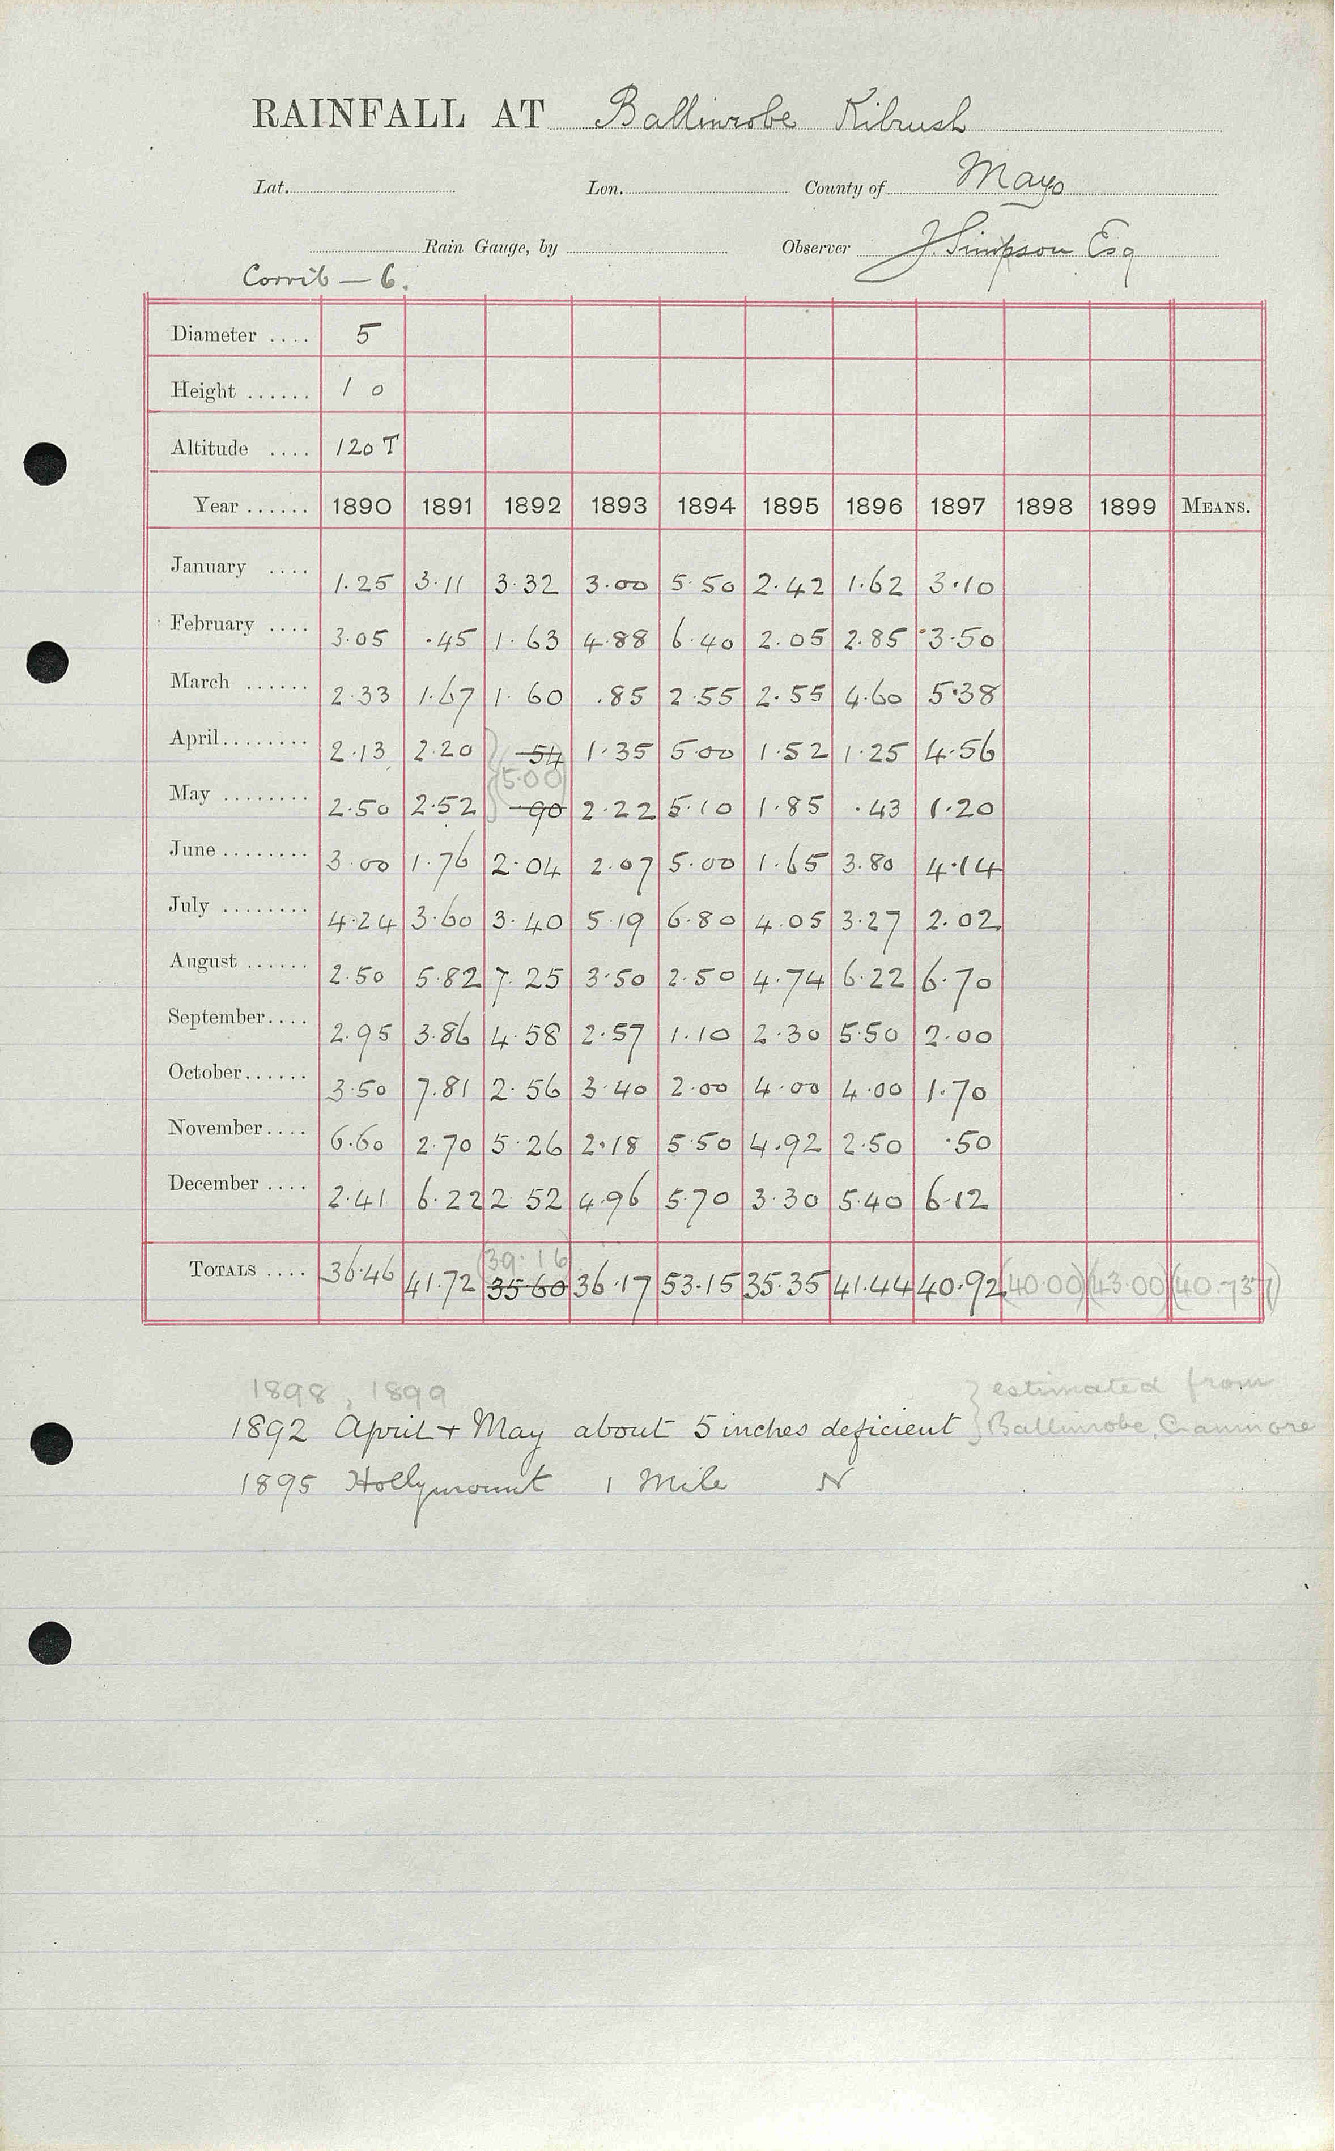 RAINFALL AT Ballinrobe Kilrush
Lat. Lon. County of Mayo
Rain Gauge, by Observer J. Simpson Esq
Corrib — 6.
Diameter .... 5
Height ...... 1 0
Altitude .... 120 T
Year ...... 1890 1891 1892 1893 1894 1895 1896 1897 1898 1899 MEANS.
January .... 1.25 3.11 3.32 3.00 5.50 2.42 1.62 3.10
February .... 3.05 .45 1.63 4.88 6.40 2.05 2.85 3.50
March ...... 2.33 1.67 1.60 .85 2.55 2.55 4.60 5.38
April........ 2.13 2.20 54 1.35 5.00 1.52 1.25 4.56
(5.00)
May ........ 2.50 2.52 90 2.22 5.10 1.85 .43 1.20
June ........ 3.00 1.76 2.04 2.07 5.00 1.65 3.80 4.14
July ........ 4.24 3.60 3.40 5.19 6.80 4.05 3.27 2.02
August ...... 2.50 5.82 7.25 3.50 2.50 4.74 6.22 6.70
September.... 2.95 3.86 4.58 2.57 1.10 2.30 5.50 2.00
October...... 3.50 7.81 2.56 3.40 2.00 4.00 4.00 1.70
November.... 6.60 2.70 5.26 2.18 5.50 4.92 2.50 .50
December .... 2.41 6.22 2 52 4.96 5.70 3.30 5.40 6.12
(39.16)
TOTALS .... 36.46 41.72 35 60 36.17 53.15 35.35 41.44 40.92 (40.00) (43.00) (40.737)
1898, 1899 } estimated from
1892 April + May about 5 inches deficient } Ballinrobe, Cranmore
1895 Hollymount 1 Mile N